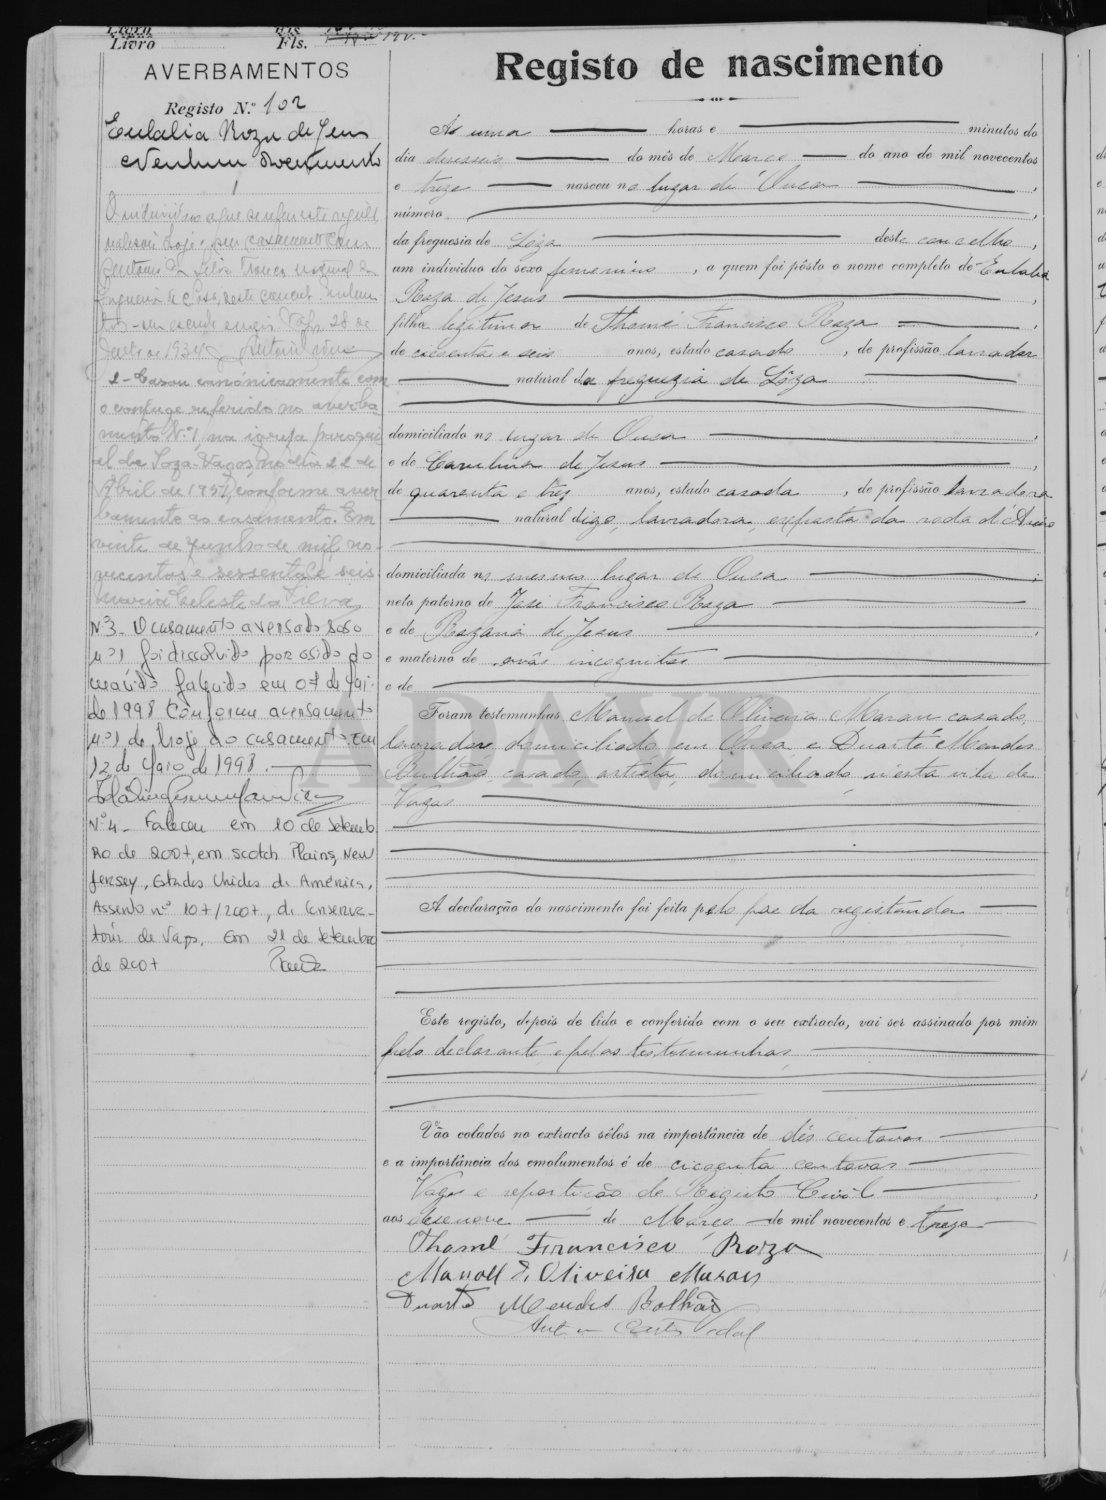 Livro
Fls.
AVERBAMENTOS
Registo N.º 102
Eulalia Roza de Jesus
Nenhum Documento
1
O individuo a que se refere este registo
realisou hoje o seu casamento com
natural da
freguesia de Soza, deste concelho
28 de
de 1934
2 - Casou canónicamente com
o conjuge referido no averba
mento Nº 1, na igreja paroqui
al de Soza-Vagos, no dia 22 de
Abril de 1957, conforme aver
bamento ao casamento. Em
vinte de Junho de mil no-
vecentos e sessenta e seis
Maria Celeste da Silva
Nº3 - O casamento averbado sob o
nº 1 foi dissolvido por óbito do
marido falecido em 07 de
de 1998 conforme averbamento
nº 1 de hoje ao casamento. Em
12 de Maio de 1998.
Nº 4 - Faleceu em 10 de Setemb
ro de 2007, em Scotch Plains, New
Jersey, Estados Unidos da América,
Assento nº 107/2007, da Conserva-
tória de Vagos. Em 21 de Setembro
de 2007
Registo de nascimento
Ás uma horas e minutos do
dia deseseis do mês de Março do ano de mil novecentos
e treze nasceu no lugar de Ouca ,
número ,
da freguesia de Sôza deste concelho ,
um individuo do sexo femenino , a quem foi pôsto o nome completo de Eulalia
Roza de Jesus ,
filha legitima de Thomé Francisco Roza
de cincoenta e seis anos, estado casado , de profissão lavrador
natural da freguezia de Sôza
domiciliado no lugar de Ouca ,
e de Carolina de Jesus ,
de quarenta e tres anos, estado casada , de profissão lavradora
natural digo, lavradora, exposta da roda d'Aveiro
domiciliada no mesmo lugar de Ouca ;
neto paterno de José Francisco Roza
e de Rozaria de Jesus ,
e materno de avós incognitos
e de
Foram testemunhas Manuel de Oliveira Marau casado,
lavrador domiciliado em Ouca e Duarte Mendes
Bulhão, casado, artista, domiciliado n'esta vila de
Vagos
A declaração do nascimento foi feita pelo pae da registanda
Este registo, depois de lido e conferido com o seu extracto, vai ser assinado por mim
pelo declarante e pelas testemunhas
Vão colados no extracto sêlos na importância de dés centavos
e a importância dos emolumentos é de cincoenta centavos
Vagos e repartição do Registo Civil ,
aos desenove de Março de mil novecentos e treze
Thomé Francisco Roza
Manoel d'Oliveira Marau
Duarte Mendes Bolhão
ADAVR